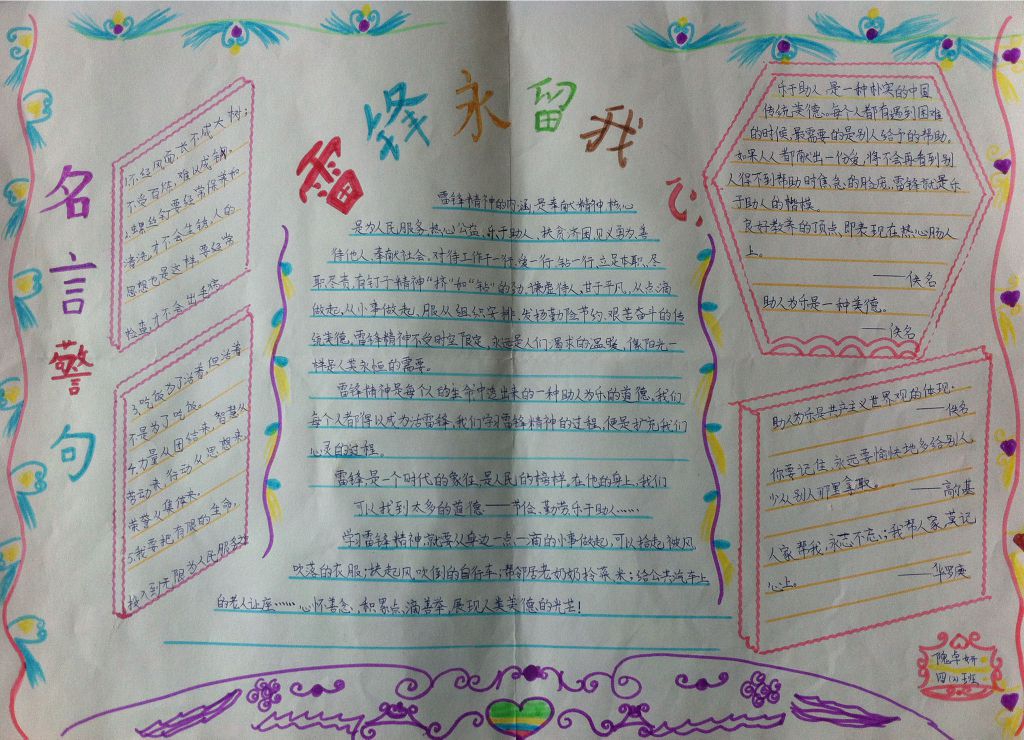 雷锋永留我心
名言警句
1.不经风雨,长不成大树;
不受百炼,难以成钢。
2.螺丝钉要经常保养和
清洗,才不会生锈。人的
思想也是这样,要经常
检查,才不会出毛病。
3.吃饭为了活着,但活着
不是为了吃饭。
4.力量从团结来,智慧从
劳动来,行动从思想来,
荣誉从集体来。
5.我要把有限的生命,
投入到无限为人民服务之
雷锋精神的内涵,是奉献精神,核心
是为人民服务,热心公益,乐于助人、扶贫济困、见义勇为、善
待他人、奉献社会。对待工作干一行、爱一行、钻一行,立足本职、尽
职尽责,有钉子精神“挤”如“钻”的劲,谦虚待人,甘于平凡,从点滴
做起,从小事做起,服从组织安排,发扬勤俭节约、艰苦奋斗的传
统美德,雷锋精神不受时空限定,永远是人们渴求的温暖,像阳光一
样是人类永恒的需要。
雷锋精神是每个人的生命中透出来的一种助人为乐的道德,我们
每个人都得以成为活雷锋,我们学习雷锋精神的过程,便是扩充我们
心灵的过程。
雷锋,是一个时代的象征,是人民的榜样,在他的身上,我们
可以找到太多的道德——节俭、勤劳、乐于助人……
学习雷锋精神,就要从身边一点一滴的小事做起,可以拾起被风
吹落的衣服;扶起风吹倒的自行车;帮邻居老奶奶拎菜、米;给公共汽车上
的老人让座……心怀善念、积累点滴善举,展现人类美德的光芒!
乐于助人是一种朴实的中国
传统美德。每个人都有遇到困难
的时候,最需要的是别人给予的帮助。
如果人人都献出一份爱,将不会再看到别
人得不到帮助时焦急的脸庞,雷锋就是乐
于助人的楷模。
良好教养的顶点,即表现在热心肠人
上。
——佚名
助人为乐是一种美德。
——佚名
助人为乐是共产主义世界观的体现。
——佚名
你要记住,永远要愉快地多给别人,
少从别人那里拿取。
——高尔基
人家帮我,永志不忘;我帮人家,莫记
心上。
——华罗庚
隗卓妍
四(1)班